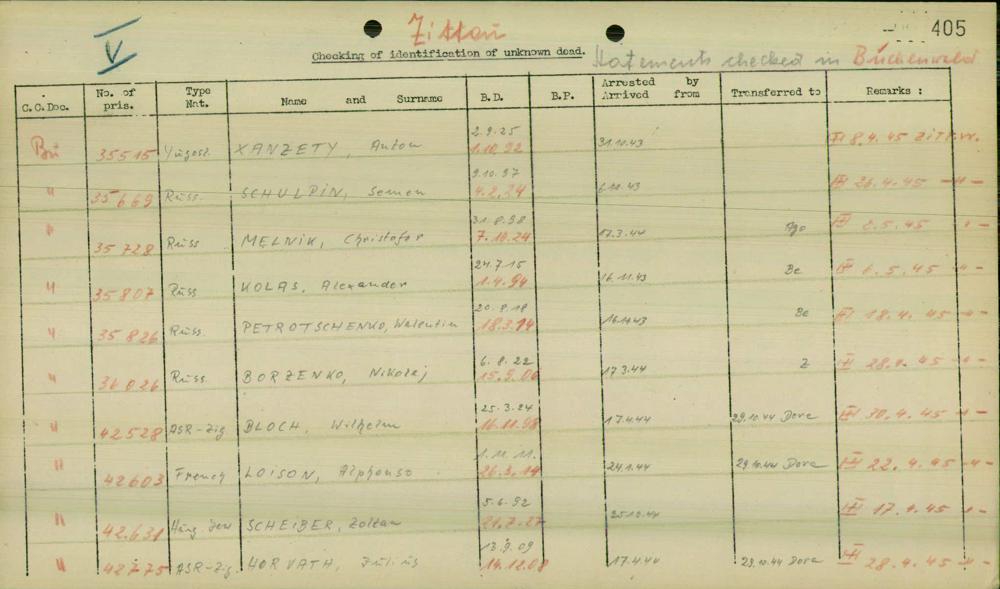 V
Zittau
405
Checking of identification of unknown dead.
Statements checked in Buchenwald
C.C.Doc. No. of pris. Type Nat. Name and Surname B.D. B.P. Arrested by Arrived from Transferred to Remarks :
2.9.25
Bu 35515 Yugosl. XANZETY, Anton 1.10.22 31.10.43 III 8.4.45
9.10.97
" 35669 Russ. SCHULPIN, Semen 4.2.24 6.10.43 III 26.4.45 -"-
31.8.98
" 35728 Russ MELNIK, Christofor 7.10.24 17.3.44 2.5.45 "-
24.7.15
" 35807 Russ KOLAS, Alexander 1.4.94 16.11.43 Be 6.5.45 -"-
20.8.18
" 35826 Russ. PETROTSCHENKO, Walentin 18.3.14 Be 18.4.45 -"-
6.8.22
" 36026 Russ. BORZENKO, Nikolaj 15.9.06 17.3.44 Z 28.4.45 -"-
25.3.24
" 42528 ASR-Zig BLOCH, Wilhelm 16.11.98 17.4.44 29.10.44 Dora III 30.4.45 "-
1.11.11.
" 42603 French LOISON, Alphonso 26.3.14 24.1.44 29.10.44 Dora III 22.4.45 -"-
5.6.92
" 42631 Hung. Jew SCHEIBER, Zoltan 21.7.27 III 17.4.45 "-
13.9.09
" 42775 ASR-Zig. HORVATH, Julius 14.12.08 17.4.44 29.10.44 Dora III 28.4.45 "-